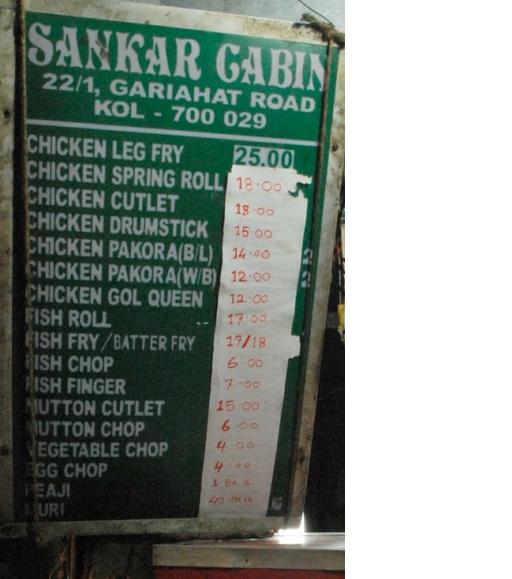 SANKAR CABIN
22/1, GARIAHAT ROAD
KOL - 700 029
CHICKEN LEG FRY 25.00
CHICKEN SPRING ROLL 18.00
CHICKEN CUTLET 18.00
CHICKEN DRUMSTICK 15.00
CHICKEN PAKORA(B/L) 14.00
CHICKEN PAKORA(W/B) 12.00
CHICKEN GOL QUEEN 12.00
FISH ROLL 17.00
FISH FRY/BATTER FRY 17/18
FISH CHOP 6.00
FISH FINGER 7.00
MUTTON CUTLET 15.00
MUTTON CHOP 6.00
VEGETABLE CHOP 4.00
EGG CHOP 4.00
PEAJI
MURI